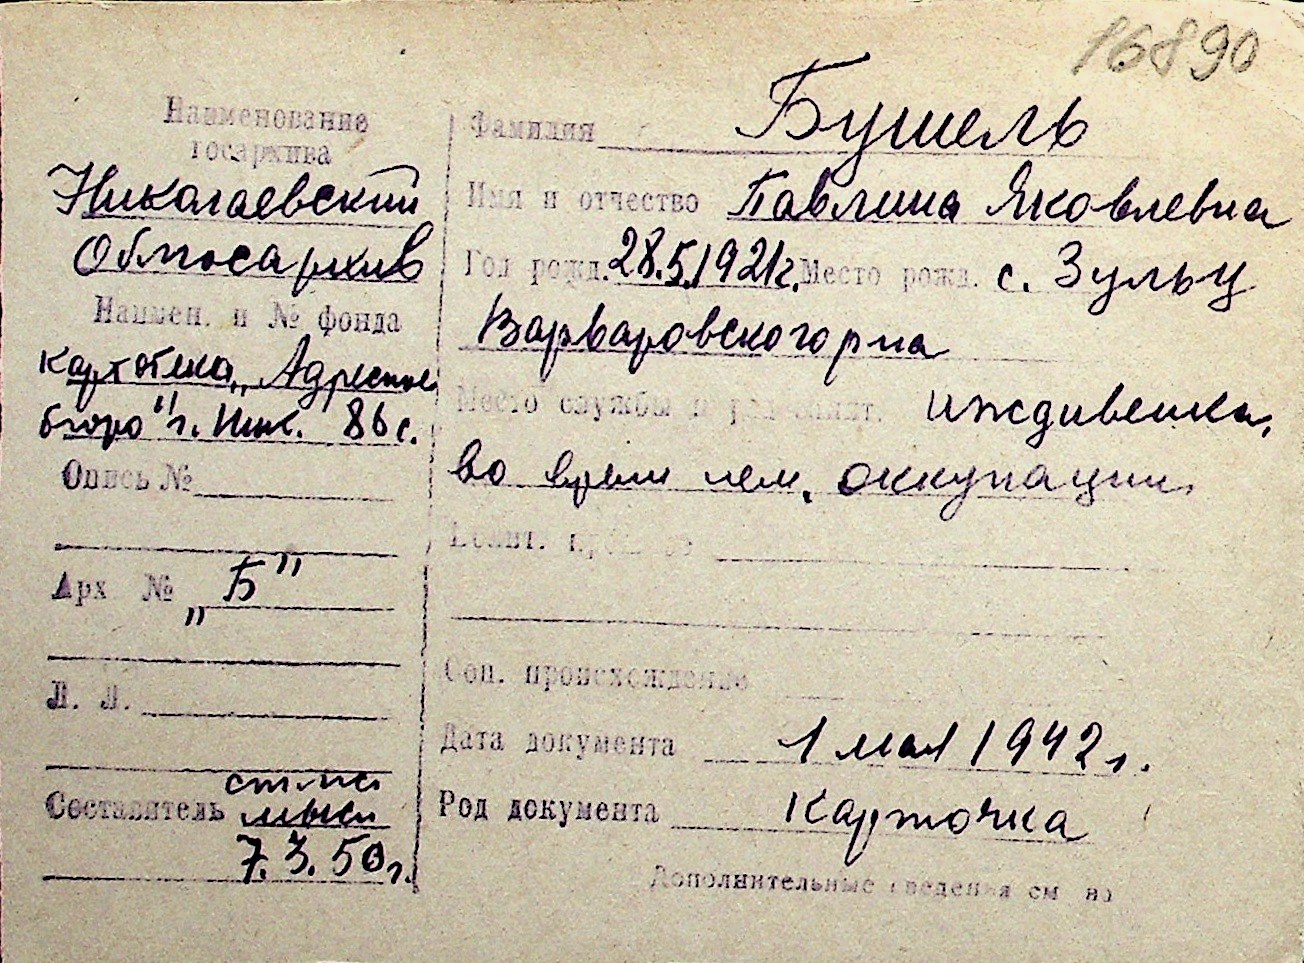 16890
Наименование
госархива
Николаевский
Облгосархив
Наимен. и № фонда
Картотека „Адресное
бюро" г. Ник. 86 с.
Опись №
Арх № „Б"
Л. Л.
Составитель
7.3.50г.
Фамилия Бушель
Имя и отчество Павлина Яковлевна
Год рожд. 28.5.1921г. Место рожд. с. Зульц
Варваровского р-на
Место службы и иждивенка,
во время нем. оккупации
Соц. происхождение
Дата документа 1 мая 1942 г.
Род документа Карточка
Дополнительные сведения см на